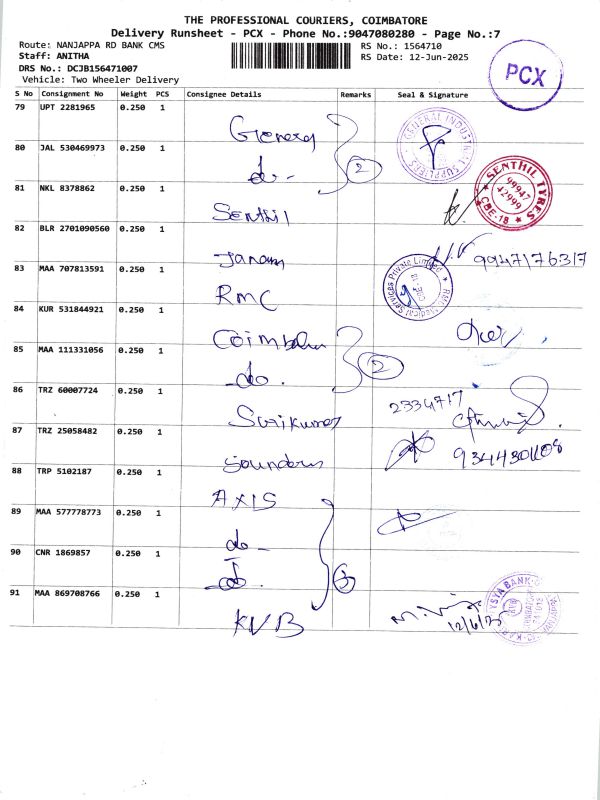 THE PROFESSIONAL COURIERS, COIMBATORE
Delivery Runsheet - PCX - Phone No.:9047080280 - Page No.:7
Route: NANJAPPA RD BANK CMS RS No.: 1564710
Staff: ANITHA RS Date: 12-Jun-2025
DRS No.: DCJB156471007
Vehicle: Two Wheeler Delivery
PCX
S No Consignment No Weight PCS Consignee Details Remarks Seal & Signature
79 UPT 2281965 0.250 1
General
GENERAL INDUSTRIAL SUPPLIERS
80 JAL 530469973 0.250 1
do - 2
81 NKL 8378862 0.250 1
Senthil
SENTHIL TYRES
99947
42999
CBE-18
82 BLR 2701090560 0.250 1
Janam 9947176317
83 MAA 707813591 0.250 1
RMC
Medical Services Private Limited
84 KUR 531844921 0.250 1
Coimbatore
85 MAA 111331056 0.250 1
do . 2
86 TRZ 60007724 0.250 1
2334717
87 TRZ 25058482 0.250 1
88 TRP 5102187 0.250 1
AXIS
89 MAA 577778773 0.250 1
do -
90 CNR 1869857 0.250 1
do . 3
91 MAA 869708766 0.250 1
KVB
12/6/25